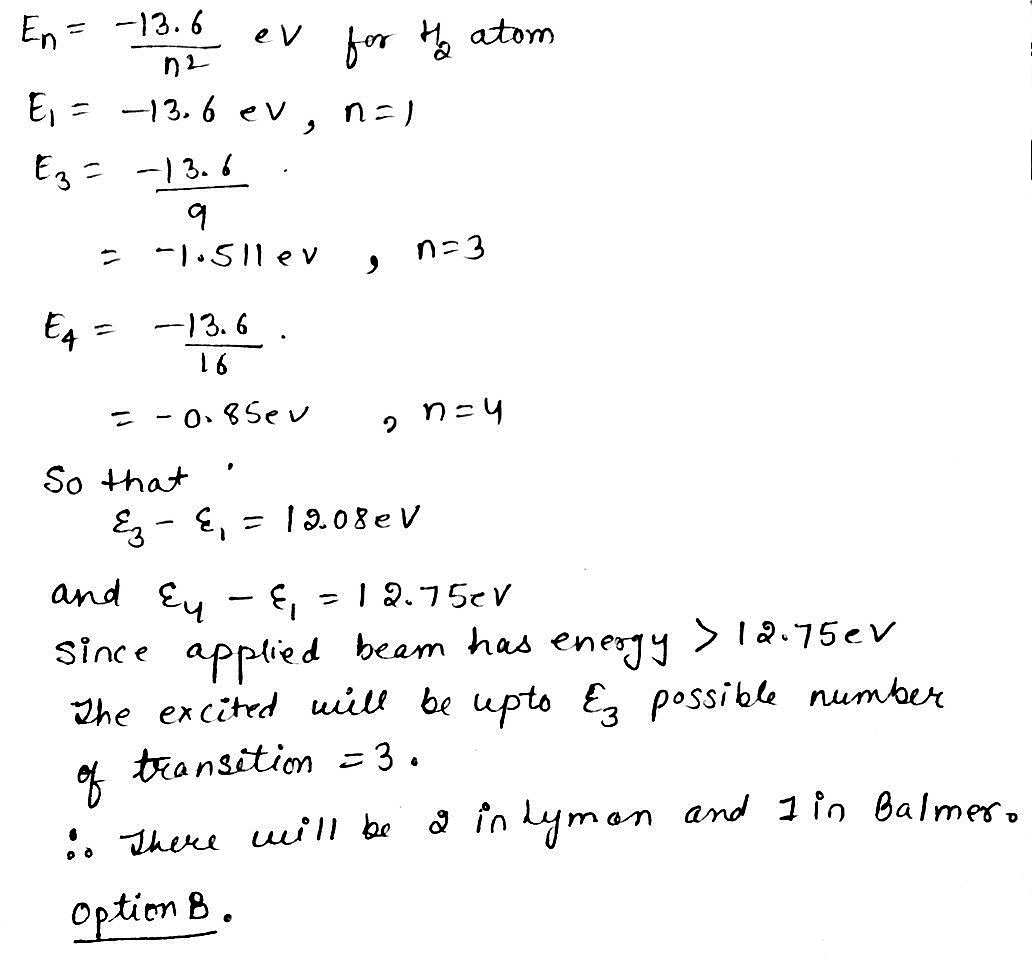 En = -13.6/n2 eV for H2 atom
E1 = -13.6 eV, n=1
E3 = -13.6/9
= -1.511 eV, n=3
E4 = -13.6/16
= -0.85eV, n=4
So that
ε3 - ε1 = 12.08eV
and ε4 - ε1 = 12.75eV
Since applied beam has energy > 12.75eV
The excited will be upto ε3 possible number
of transition = 3.
∴ There will be 2 in Lyman and 1 in Balmer.
Option B.